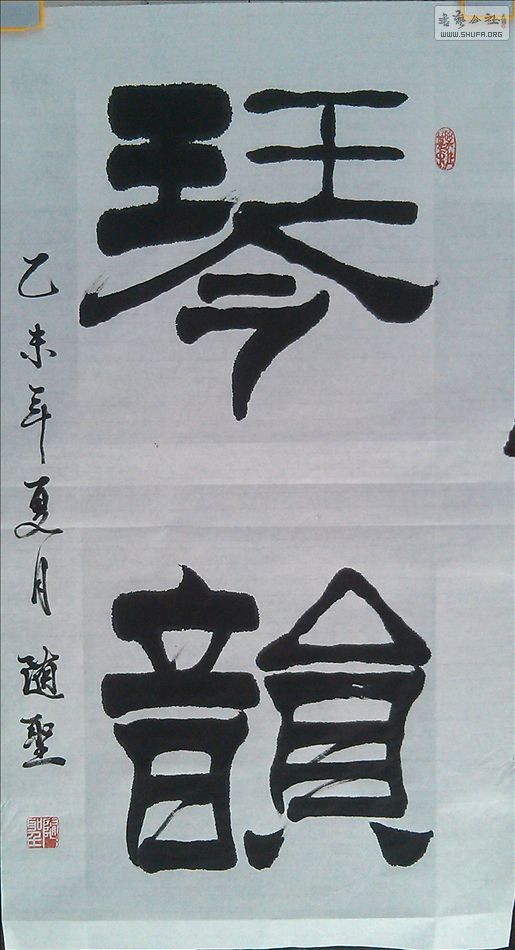 琴韻
乙未年夏月 随聖
書藝公社
WWW.SHUFA.ORG